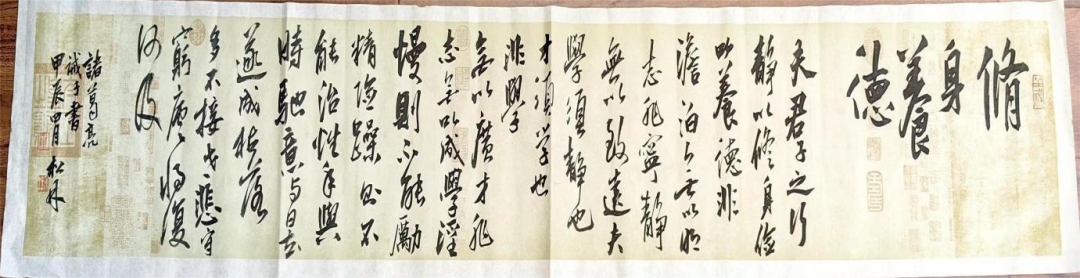 脩身
養德
夫君子之行
靜以修身儉
以養德非
澹泊无以明
志非寧靜
無以致遠夫
學須靜也
才須学也
非學
无以廣才非
志无以成學淫
慢則不能勵
精險躁則不
能治性年與
時馳意与日去
遂成枯落
多不接世悲守
窮廬将復
何及
諸葛亮
誡子書
甲辰四月